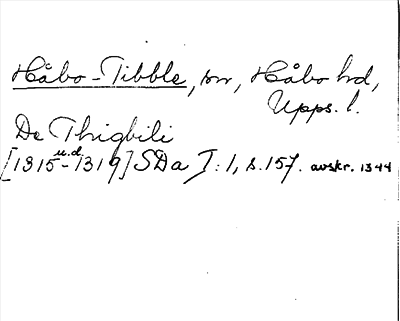 Håbo-Tibble, sn, Håbo hd,
Upps. l.
De Thigbili
[1315 u.d. -1319] SDa I: 1, s. 157. avskr. 1344